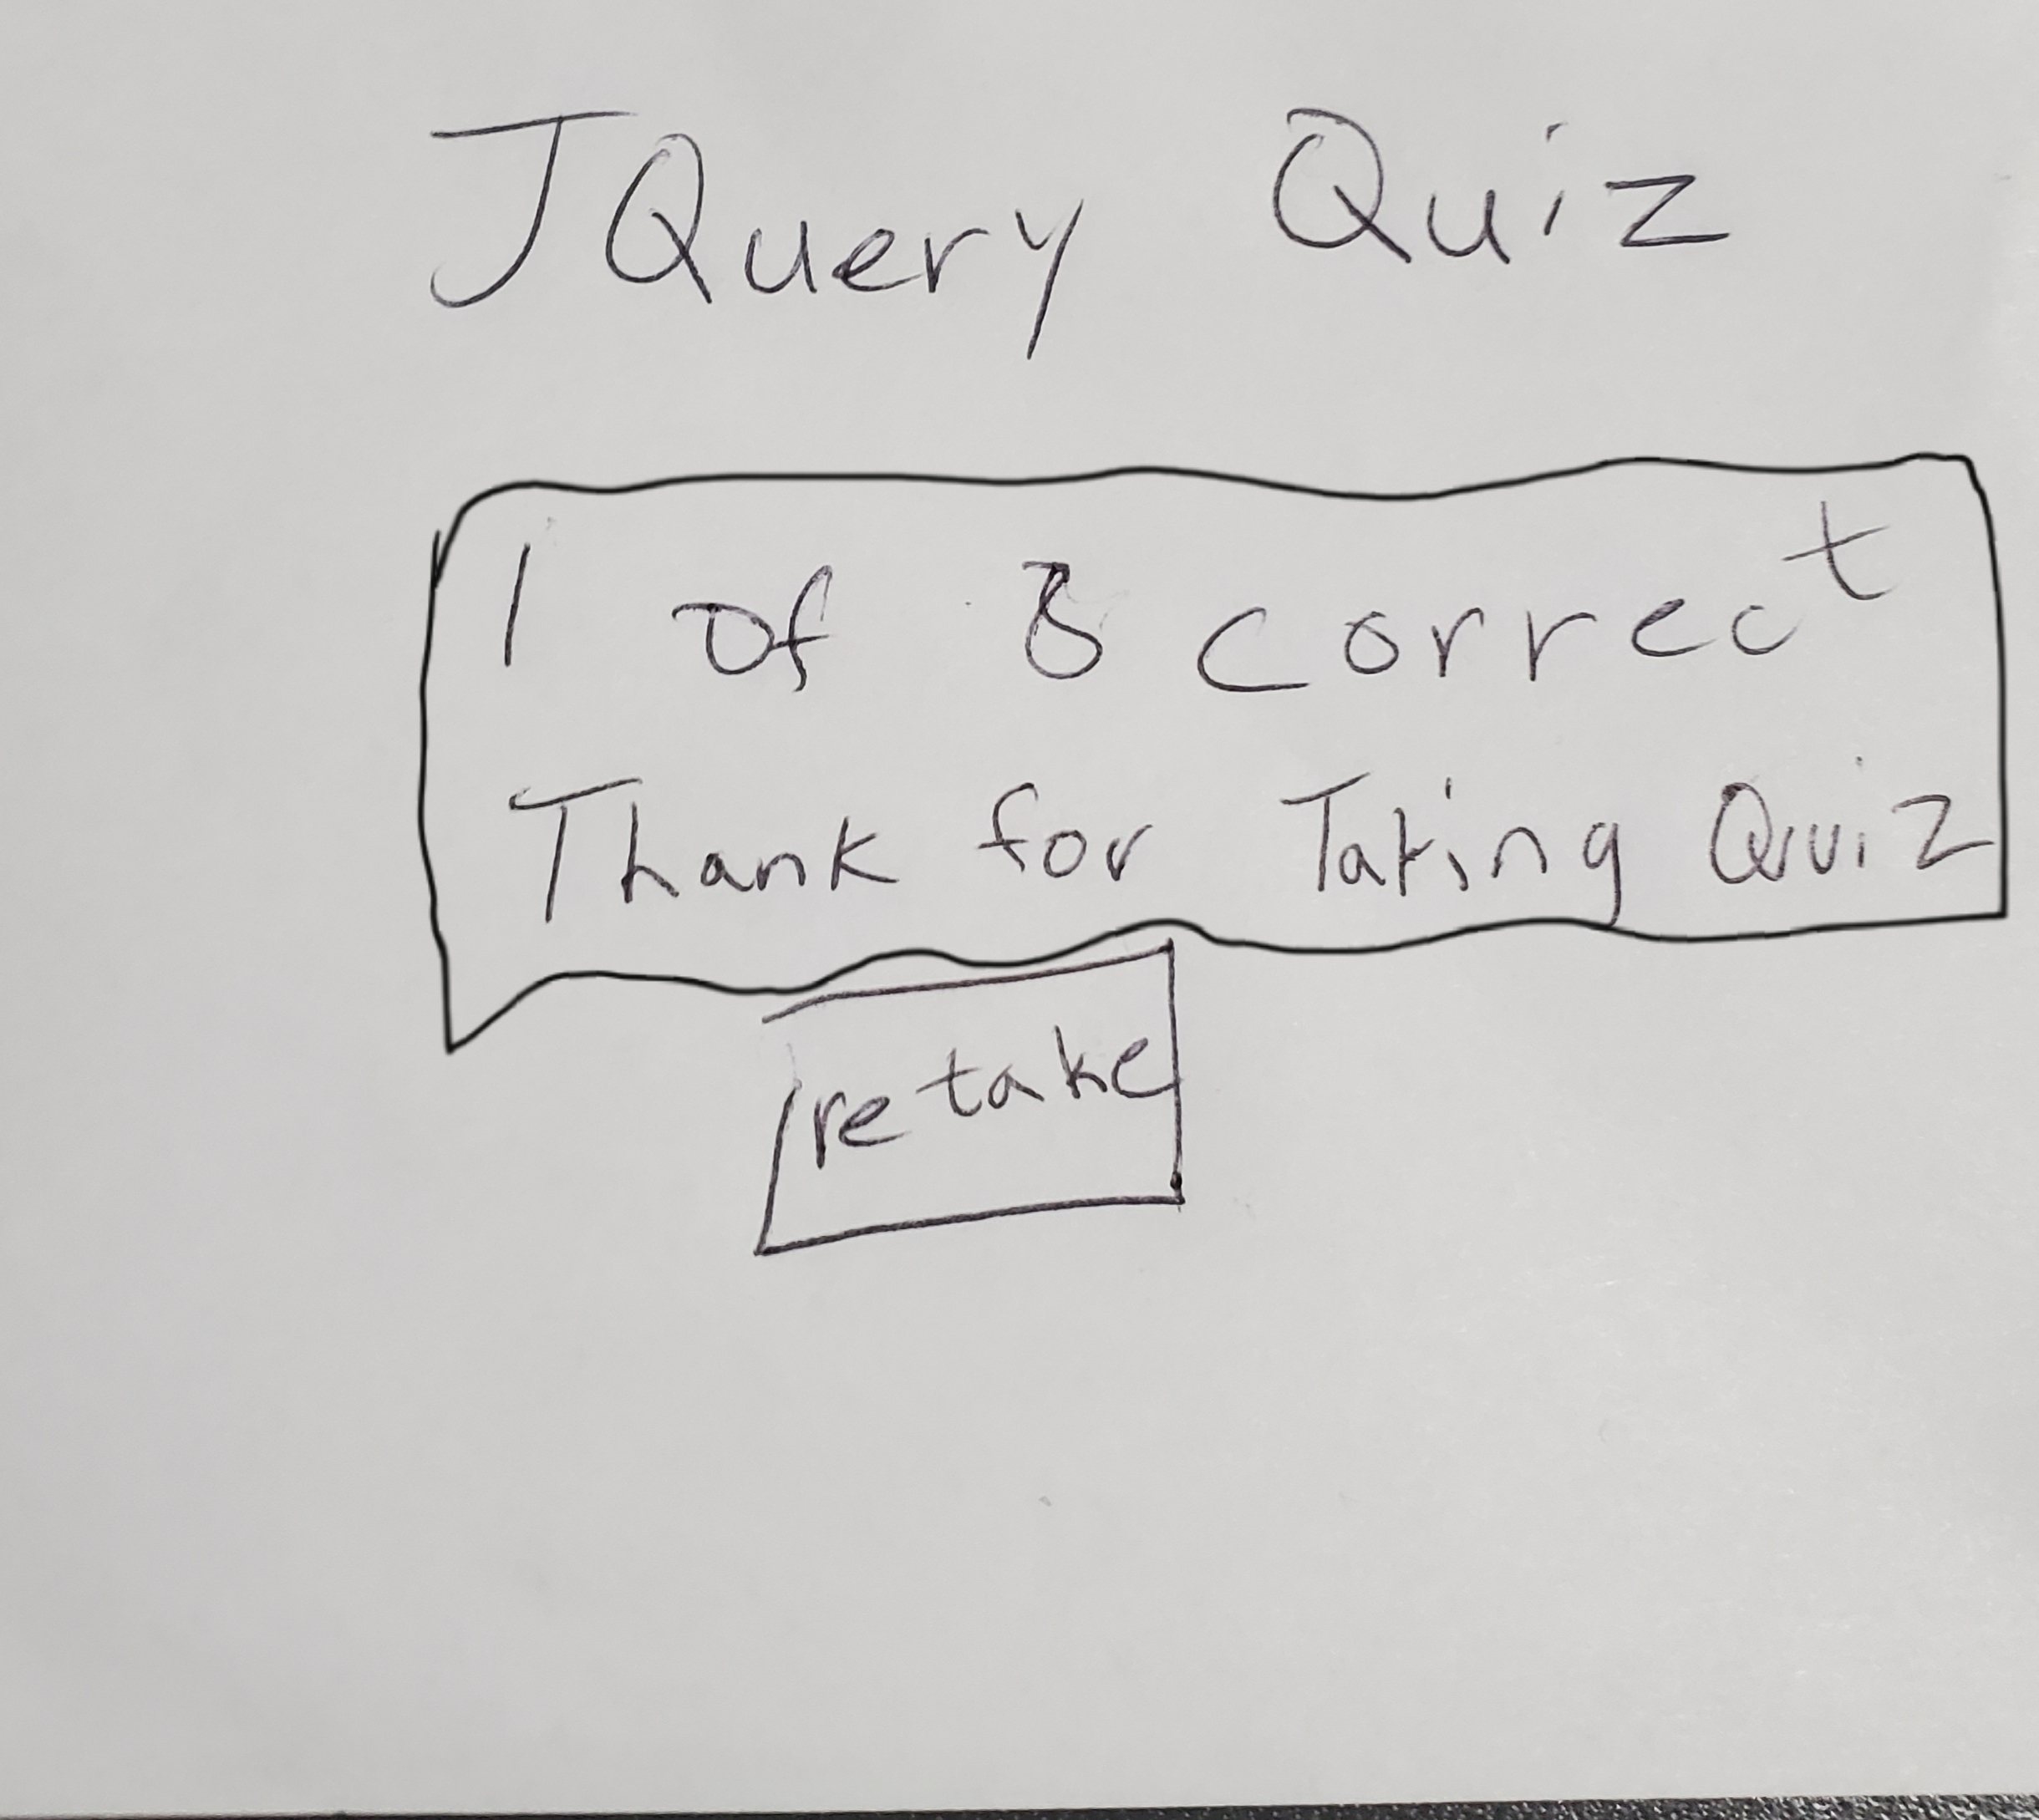 JQuery Quiz
1 of 8 correct
Thank for Taking Quiz
retake